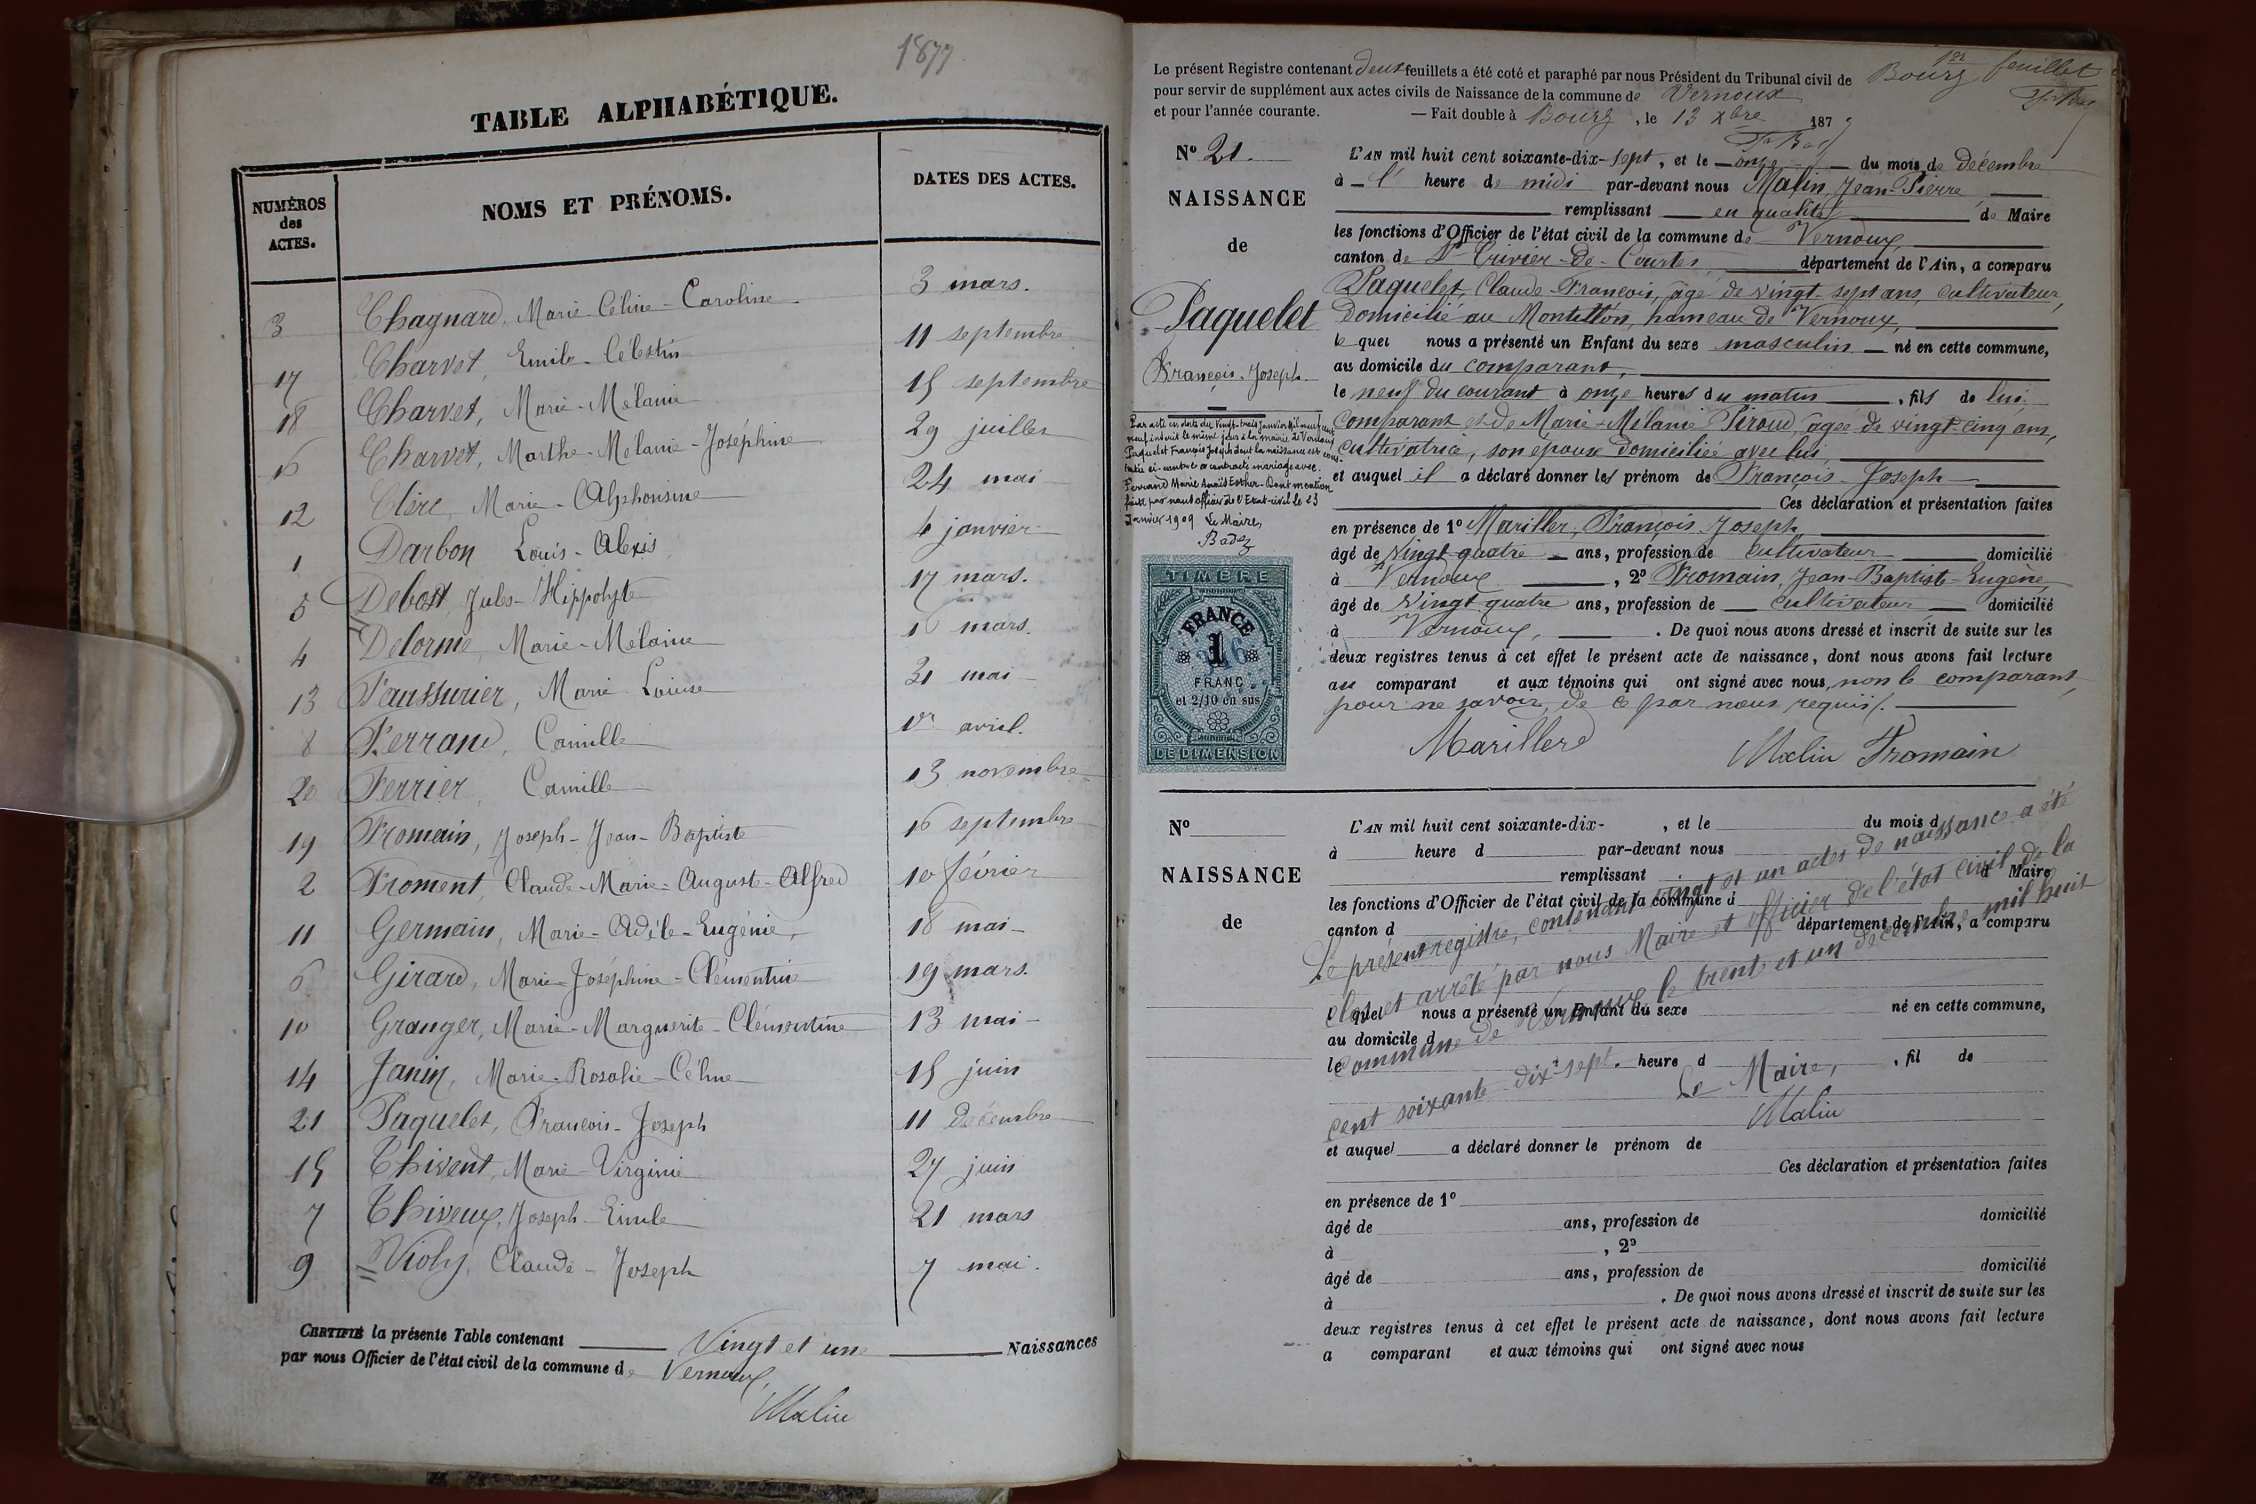 1877
TABLE ALPHABÉTIQUE.
NUMÉROS des ACTES. NOMS ET PRÉNOMS. DATES DES ACTES.
3 Chagnard, Marie-Céline-Caroline 3 mars.
17 Charvet, Emile-Célestin 11 septembre
18 Charvet, Marie-Mélanie 15 septembre
16 Charvet, Marthe-Mélanie-Joséphine 29 juillet
12 Clerc, Marie-Alphonsine 24 mai
1 Darbon Louis-Alexis 4 janvier
5 Debost, Jules-Hippolyte 17 mars.
4 Delorme, Marie-Mélanie mars.
13 Faussurier, Marie Louise 31 mai
8 Ferrand, Camille 1er avril.
20 Ferrier, Camille 13 novembre
19 Fromain, Joseph-Jean-Baptiste 16 septembre
2 Froment, Claude-Marie-Auguste-Alfred 10 février
11 Germain, Marie-Adèle-Eugénie, 18 mai
6 Girard, Marie-Joséphine-Clémentine 19 mars.
10 Granger, Marie-Marguerite-Clémentine 13 mai
14 Janin, Marie-Rosalie-Céline 15 juin
21 Paquelet, François-Joseph 11 décembre
15 Thivent, Marie-Virginie 27 juin
7 Thiveux, Joseph-Emile 21 mars
9 Violy, Claude-Joseph 7 mai.
CERTIFIÉ la présente Table contenant Vingt et une Naissances
par nous Officier de l'état civil de la commune de Vernoux,
Malin
1er feuillet
Le présent Registre contenant deux feuillets a été coté et paraphé par nous Président du Tribunal civil de Bourg
pour servir de supplément aux actes civils de Naissance de la commune de Vernoux
et pour l'année courante. — Fait double à Bourg, le 13 xbre 1877
N° 21.
NAISSANCE
de
Paquelet
François-Joseph
Par acte en date du vingt-trois janvier mil neuf cent
neuf, inscrit le même jour à la mairie de Vernoux
Paquelet François Joseph dont la naissance est cons-
tatée ci-contre a contracté mariage avec
Ferrand Marie Anaïs Esther. Dont mention
faite par nous officier de l'Etat-civil le 23
Janvier 1909 Le Maire,
L'AN mil huit cent soixante-dix-sept, et le onze du mois de décembre
à l' heure de midi par-devant nous Malin, Jean-Pierre
remplissant en qualité de Maire
les fonctions d'Officier de l'état civil de la commune de Vernoux
canton de St Trivier-de-Courtes département de l'Ain, a comparu
Paquelet, Claude-François, âgé de vingt-sept ans, cultivateur,
domicilié au Montillon, hameau de Vernoux,
lequel nous a présenté un Enfant du sexe masculin né en cette commune,
au domicile du comparant,
le neuf du courant à onze heures du matin, fils de lui
comparant et de Marie-Mélanie Piroud, âgée de vingt-cinq ans,
cultivatrice, son épouse domiciliée avec lui,
et auquel il a déclaré donner les prénom de François-Joseph
Ces déclaration et présentation faites
en présence de 1° Mariller, François-Joseph
âgé de vingt-quatre ans, profession de cultivateur domicilié
à Vernoux, 2° Fromain, Jean-Baptiste-Eugène,
âgé de vingt-quatre ans, profession de cultivateur domicilié
à Vernoux, . De quoi nous avons dressé et inscrit de suite sur les
deux registres tenus à cet effet le présent acte de naissance, dont nous avons fait lecture
au comparant et aux témoins qui ont signé avec nous, non le comparant,
pour ne savoir, de ce par nous requis/.
Marillere Malin Fromain
TIMBRE
FRANCE
1
FRANC
et 2/10 en sus
DE DIMENSION
N°
NAISSANCE
de
L'AN mil huit cent soixante-dix- , et le du mois d
à heure d par-devant nous
remplissant d Maire
les fonctions d'Officier de l'état civil de la commune d
canton d département de l'Ain, a comparu
Le présent registre, contenant vingt et un actes de naissance a été
clos et arrêté par nous Maire et officier de l'état civil de la
commune de Vernoux le trente et un décembre mil huit
cent soixante-dix-sept.
Le Maire,
Malin
l quel nous a présenté un Enfant du sexe né en cette commune,
au domicile d
le heure d , fil de
et auquel a déclaré donner le prénom de
Ces déclaration et présentation faites
en présence de 1°
âgé de ans, profession de domicilié
à , 2°
âgé de ans, profession de domicilié
à . De quoi nous avons dressé et inscrit de suite sur les
deux registres tenus à cet effet le présent acte de naissance, dont nous avons fait lecture
a comparant et aux témoins qui ont signé avec nous